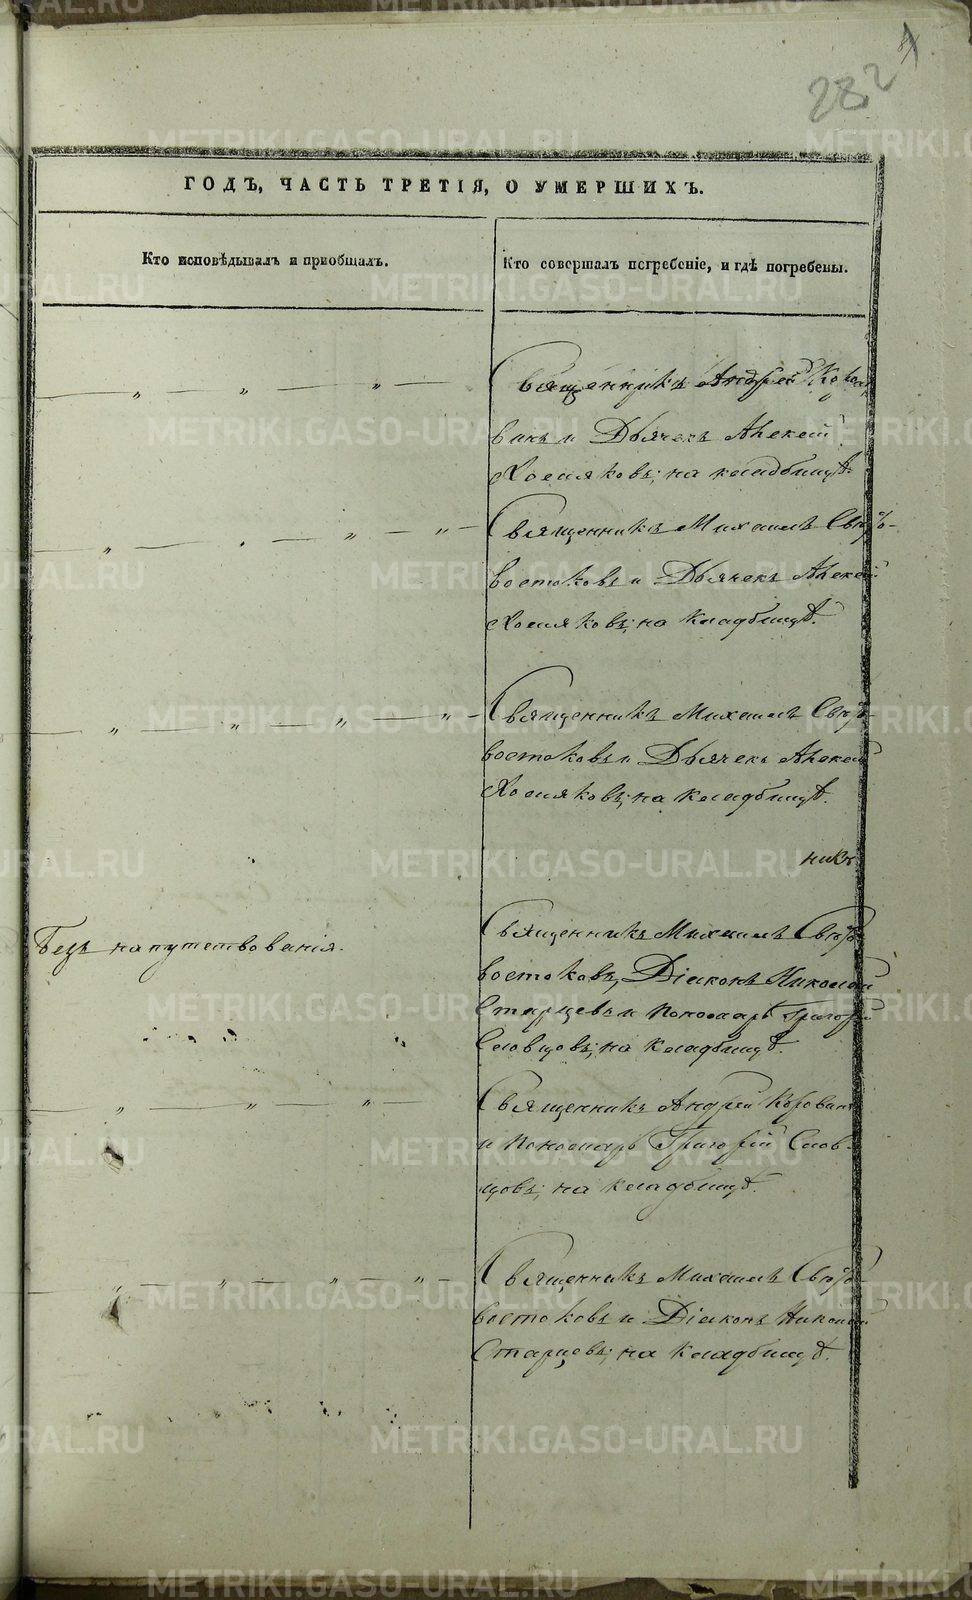 282
ГОДЪ, ЧАСТЬ ТРЕТІЯ, О УМЕРШИХЪ.
Кто исповѣдывалъ и пріобщалъ.
Кто совершалъ погребеніе, и гдѣ погребены.
Священникъ Андрей Коро
винъ и Дьячекъ Алексѣй
Хосяковъ; на кладбищѣ.
Священникъ Михаилъ Свѣто-
востоковъ и Дьячекъ Алексѣй
Хосяковъ; на кладбищѣ.
Священникъ Михаилъ Свѣто-
востоковъ и Дьячекъ Алексѣй
Хосяковъ; на кладбищѣ.
никъ
Безъ напутствованія.
Священникъ Михаилъ Свѣто
востоковъ, Діаконъ Николай
Старцевъ и Пономарь Григорій
Словцовъ; на кладбищѣ.
Священникъ Андрей Коровинъ
и Пономарь Григорій Слов-
цовъ; на кладбищѣ.
Священникъ Михаилъ Свѣто
востоковъ и Діаконъ Николай
Старцевъ; на кладбищѣ.
METRIKI.GASO-URAL.RU